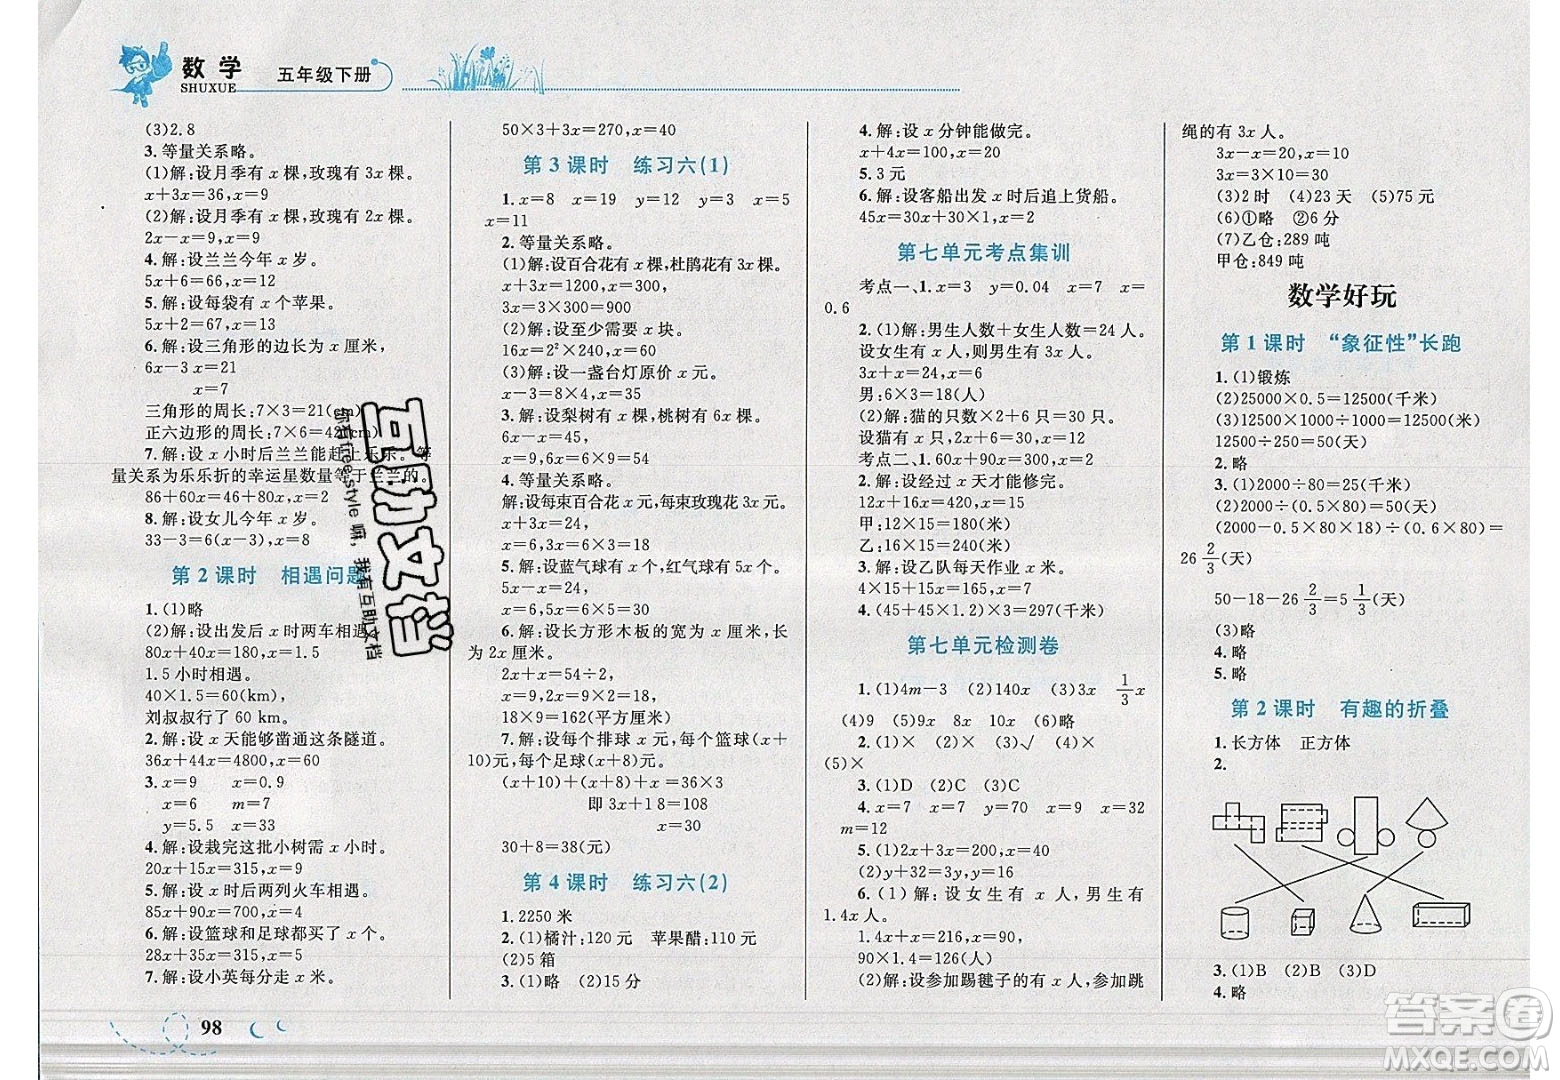 数学
SHUXUE
五年级下册
(3)2.8
3. 等量关系略。
(1)解:设月季有 x 棵,玫瑰有 3x 棵。
x+3x=36,x=9
(2)解:设月季有 x 棵,玫瑰有 2x 棵。
2x-x=9,x=9
4. 解:设兰兰今年 x 岁。
5x+6x=66,x=6
5. 解:设每袋有 x 个苹果。
5x+2=67,x=13
6. 解:设三角形的边长为 x 厘米,
6x-3x=21
x=7
三角形的周长:7×3=21(cm)
正六边形的周长:7×6=42(cm)
7. 解:设 x 小时后兰兰能赶上乐乐。等
量关系为乐乐折的幸运星数量等于兰兰的。
86+60x=46+80x,x=2
8. 解:设女儿今年 x 岁。
33-3=6(x-3),x=8
第 2 课时 相遇问题
1. (1)略
(2)解:设出发后 x 时两车相遇。
80x+40x=180,x=1.5
1.5 小时相遇。
40×1.5=60(km),
刘叔叔行了 60 km。
2. 解:设 x 天能够凿通这条隧道。
36x+44x=4800,x=60
3. x=9 x=0.9
x=6 m=7
y=5.5 x=33
4. 解:设栽完这批小树需 x 小时。
20x+15x=315,x=9
5. 解:设 x 时后两列火车相遇。
85x+90x=700,x=4
6. 解:设篮球和足球都买了 x 个。
28x+35x=315,x=5
7. 解:设小英每分走 x 米。
98
50×3+3x=270,x=40
第 3 课时 练习六(1)
1. x=8 x=19 y=12 y=3 x=5
x=11
2. 等量关系略。
(1)解:设百合花有 x 棵,杜鹃花有 3x 棵。
x+3x=1200,x=300
3x=3×300=900
(2)解:设至少需要 x 块。
16x=2²×100,x=25
(3)解:设一盏台灯原价 x 元。
5x-8=3×4,x=35
3. 解:设梨树有 x 棵,桃树有 6x 棵。
6x-x=45,
x=9,6x=6×9=54
4. 等量关系略。
解:设每束百合花 x 元,每束玫瑰花 3x 元。
x+3x=24,
x=6,3x=6×3=18
5. 解:设蓝气球有 x 包,红气球有 6x 包。
x+6x=63,
x=9,6x=9×6=54
6. 解:设长方形木板的宽为 x 厘米,则
长为 2x 厘米。
2x+x=54÷2,
x=9,2x=9×2=18
18×9=162(平方厘米)
7. 解:设每个排球 x 元,每个篮球(x+
10)元,每个足球(x+8)元。
(x+10)+(x+8)+x=36×3
即 3x+18=108
x=30
30+8=38(元)
第 4 课时 练习六(2)
1. 2250 米
2. (1)橘汁:120 元 苹果醋:110 元
(2)5 箱
3. (1)略 (2)15 分
4. 解:设 x 分钟能做完。
x+4x=100,x=20
5. 3 元
6. 解:设客船出发 x 时后追上货船。
45x=30x+30×1,x=2
第七单元考点集训
考点一、1. x=3 y=0.04 x=7 x=
0.6
2. (1)解:男生人数+女生人数=24 人。
设女生有 x 人,则男生有 3x 人。
3x+x=24,x=6
男:6×3=18(人)
(2)解:猫的只数×2+6=38
设猫有 x 只。2x+6=38,x=16
考点二、1. 60x+80x=420,x=3
2. 解:设经过 x 天才能修完。
12x+16x=420,x=15
甲:12×15=180(米)
乙:16×15=240(米)
3. 解:设乙队每天作业 x 米。
4×15+15x=180,x=8
4. (45+45×1.2)×3=297(千米)
第七单元检测卷
1. (1)4m-3 (2)140x (3)3x 1/3 x
(4)9 9x 8x 10x (5)60x (6)略
2. (1)× (2)× (3)√ (4)×
(5)×
3. (1)D (2)C (3)C
4. x=7 x=7 y=70 x=9 x=32
m=12
5. (1)2x+3x=200,x=40
(2)y+32=3y,y=16
6. (1)解:设女生有 x 人,男生有
1.4x 人。
1.4x+x=216,x=90
90×1.4=126(人)
(2)解:设参加踢毽子的有 x 人,参加跳
绳的有 3x 人。
3x-x=20,x=10
3x=3×10=30
(3)2 时 (4)23 天 (5)75 元
(6)①略 ②6 分
(7)乙仓:289 吨
甲仓:849 吨
数学好玩
第 1 课时 “象征性”长跑
1. (1)锻炼
(2)25000×0.5=12500(千米)
(3)12500×1000÷1000=12500(千米)
12500÷250=50(天)
2. 略
3. (1)2000÷80=25(千米)
(2)2000÷(0.5×80)=50(天)
(2000-0.5×80×18)÷(0.6×80)=
26 2/3(天)
50-18-26 2/3=5 1/3(天)
(3)略
4. 略
5. 略
第 2 课时 有趣的折叠
1. 长方体 正方体
2.
3. (1)B (2)B (3)D
4. 略
互助文档
你有freestyle 嘛,我有互助文档
答案圈
MXQE.COM